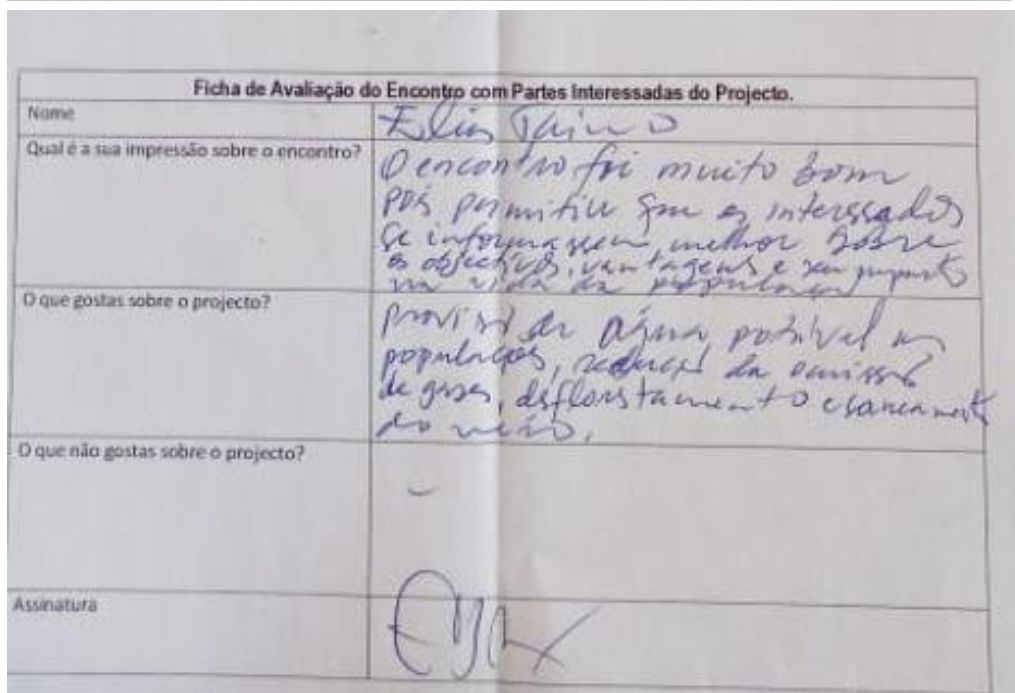 Ficha de Avaliação do Encontro com Partes Interessadas do Projecto.
Nome
Elias
Qual é a sua impressão sobre o encontro?
O encontro foi muito bom
pois permitiu que os interessados
se informassem melhor sobre
os objectivos, vantagens e seu impacto
na vida da população
O que gostas sobre o projecto?
provisão de água potável as
populações, redução da emissão
de gases, desflorestamento e saneamento
do meio.
O que não gostas sobre o projecto?
-
Assinatura